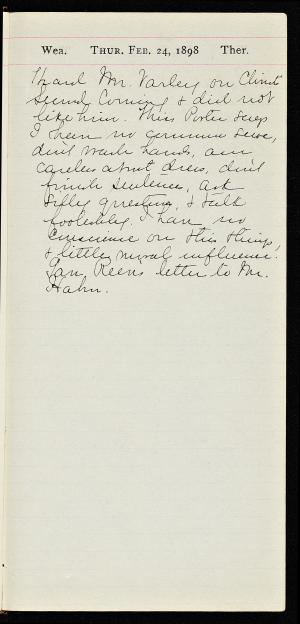 Wea. THUR. FEB. 24, 1898 Ther.
Heard Mr. Varley on Christ's
Second Coming & did not
like him. Miss Porter says
I have no common sense,
don't wash hands, am
careless about dress, don't
finish sentences, ask
silly questions, & talk
foolishly. I have no
conscience on this things,
& little moral influence.
letter to Mr.
Hahn.